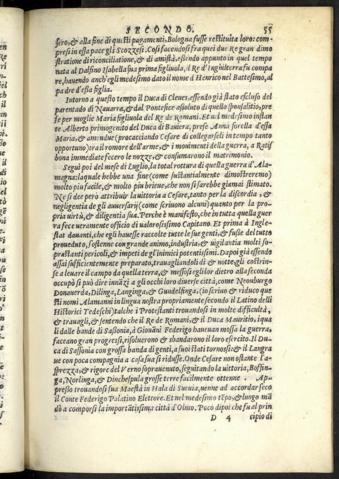 SECONDO. 55
sero, & alla fine di questi pagamenti, Bologna fusse restituita loro: com-
presi in essa pace gli Scozzesi. Cosi facendosi fra quei due Re gran dimo
stratione di riconciliatione, & di amistà, essendo appunto in quel tempo
nata al Dalfino Isabella sua prima figliuola, il Re d'Inghilterra fu compa
re, havendo anch'egli medesimo dato il nome d'Henrico nel Battesimo, al
pa dre d'essa figlia.
Intorno a questo tempo il Duca di Cleves, essendo già stato escluso del
parentado di Navarra, & dal Pontefice assoluto di quelle sponsalitio, pre
se per moglie Maria figliuola del Re de Romani. Et nel medesimo instan
te Alberto primogenito del Duca di Baviera, prese Anna sorella d'essa
Maria, & amendue (procacciando Cesare di collegarseli in tempo tanto
opportuno) tra il romore dell'arme, & i movimenti della guerra, a Ratis
bona immediate fecero le nozze, & consumarono il matrimonio.
Seguì poi del mese di Luglio, la total rottura di quella guerra d'Ale-
magna: laquale hebbe una fine (come sustantialmente dimostreremo)
molto piu facile, & molto piu brieve, che non si sarebbe giamai stimato.
Ne si dee però attribuir la vittoria a Cesare, tanto per la discordia, &
negligentia de gli aversarij (come scrivono alcuni) quanto per la pro-
pria virtù, & diligentia sua. Perche è manifesto, che in tutta quella guer
ra fece veramente officio di valorosissimo Capitano. Et prima ch'in In-
glestat, avanti, che egli havesse raccolte tutte le sue genti, & fusse del tutto
proveduto, sostenne con grande animo, industria, & vigilantia molti so-
prastanti pericoli, & impeti de gl'inimici potentissimi. Dapoi già essendo
assai sufficientemente preparato, travagliandoli dì & notte, gli costrin-
se a levare il campo da quella terra, & messosi egli lor dietro alla seconda
occupò si può dire innāzi a gli occhi loro diverse città, come Neoburgo
Donaverda, Dilinga, Lavginga, & Gundelfinga, (io scrivo & riduco que
sti nomi Alamanni in lingua nostra propriamente secondo il Latino delli
Historici Tedeschi) dalche i Protestanti trovandosi in molte difficultà,
& travagli, & sentendo che il Re de Romani, & il Duca Mauritio, iqua
li dalle bande di Sassonia, à Giovāni Federigo havevan mossa la guerra,
facevano gran progressi, risolverono & sbandarono il loro esercito. Il Du
ca di Sassonia con grossa banda di genti, a suoi stati tornossi: & il Langra
ve con poca compagnia a casa sua si ridusse. Onde Cesare non ostante l'a-
sprezza, & rigore del Verno sopravenuto, seguitando la vittoria, Boffin-
ga, Norlinga, & Dinchespula grosse terre facilmente ottenne. Ap-
presso trovandosi sua Maestà in Hala di Suevia, venne ad accordar seco
il Conte Federigo Palatino Elettore. Et nel medesimo tēpo, & luogo mā
dò a comporsi la importātissima città d'Olmo. Poco dipoi che fu al prin
D 4 cipio di